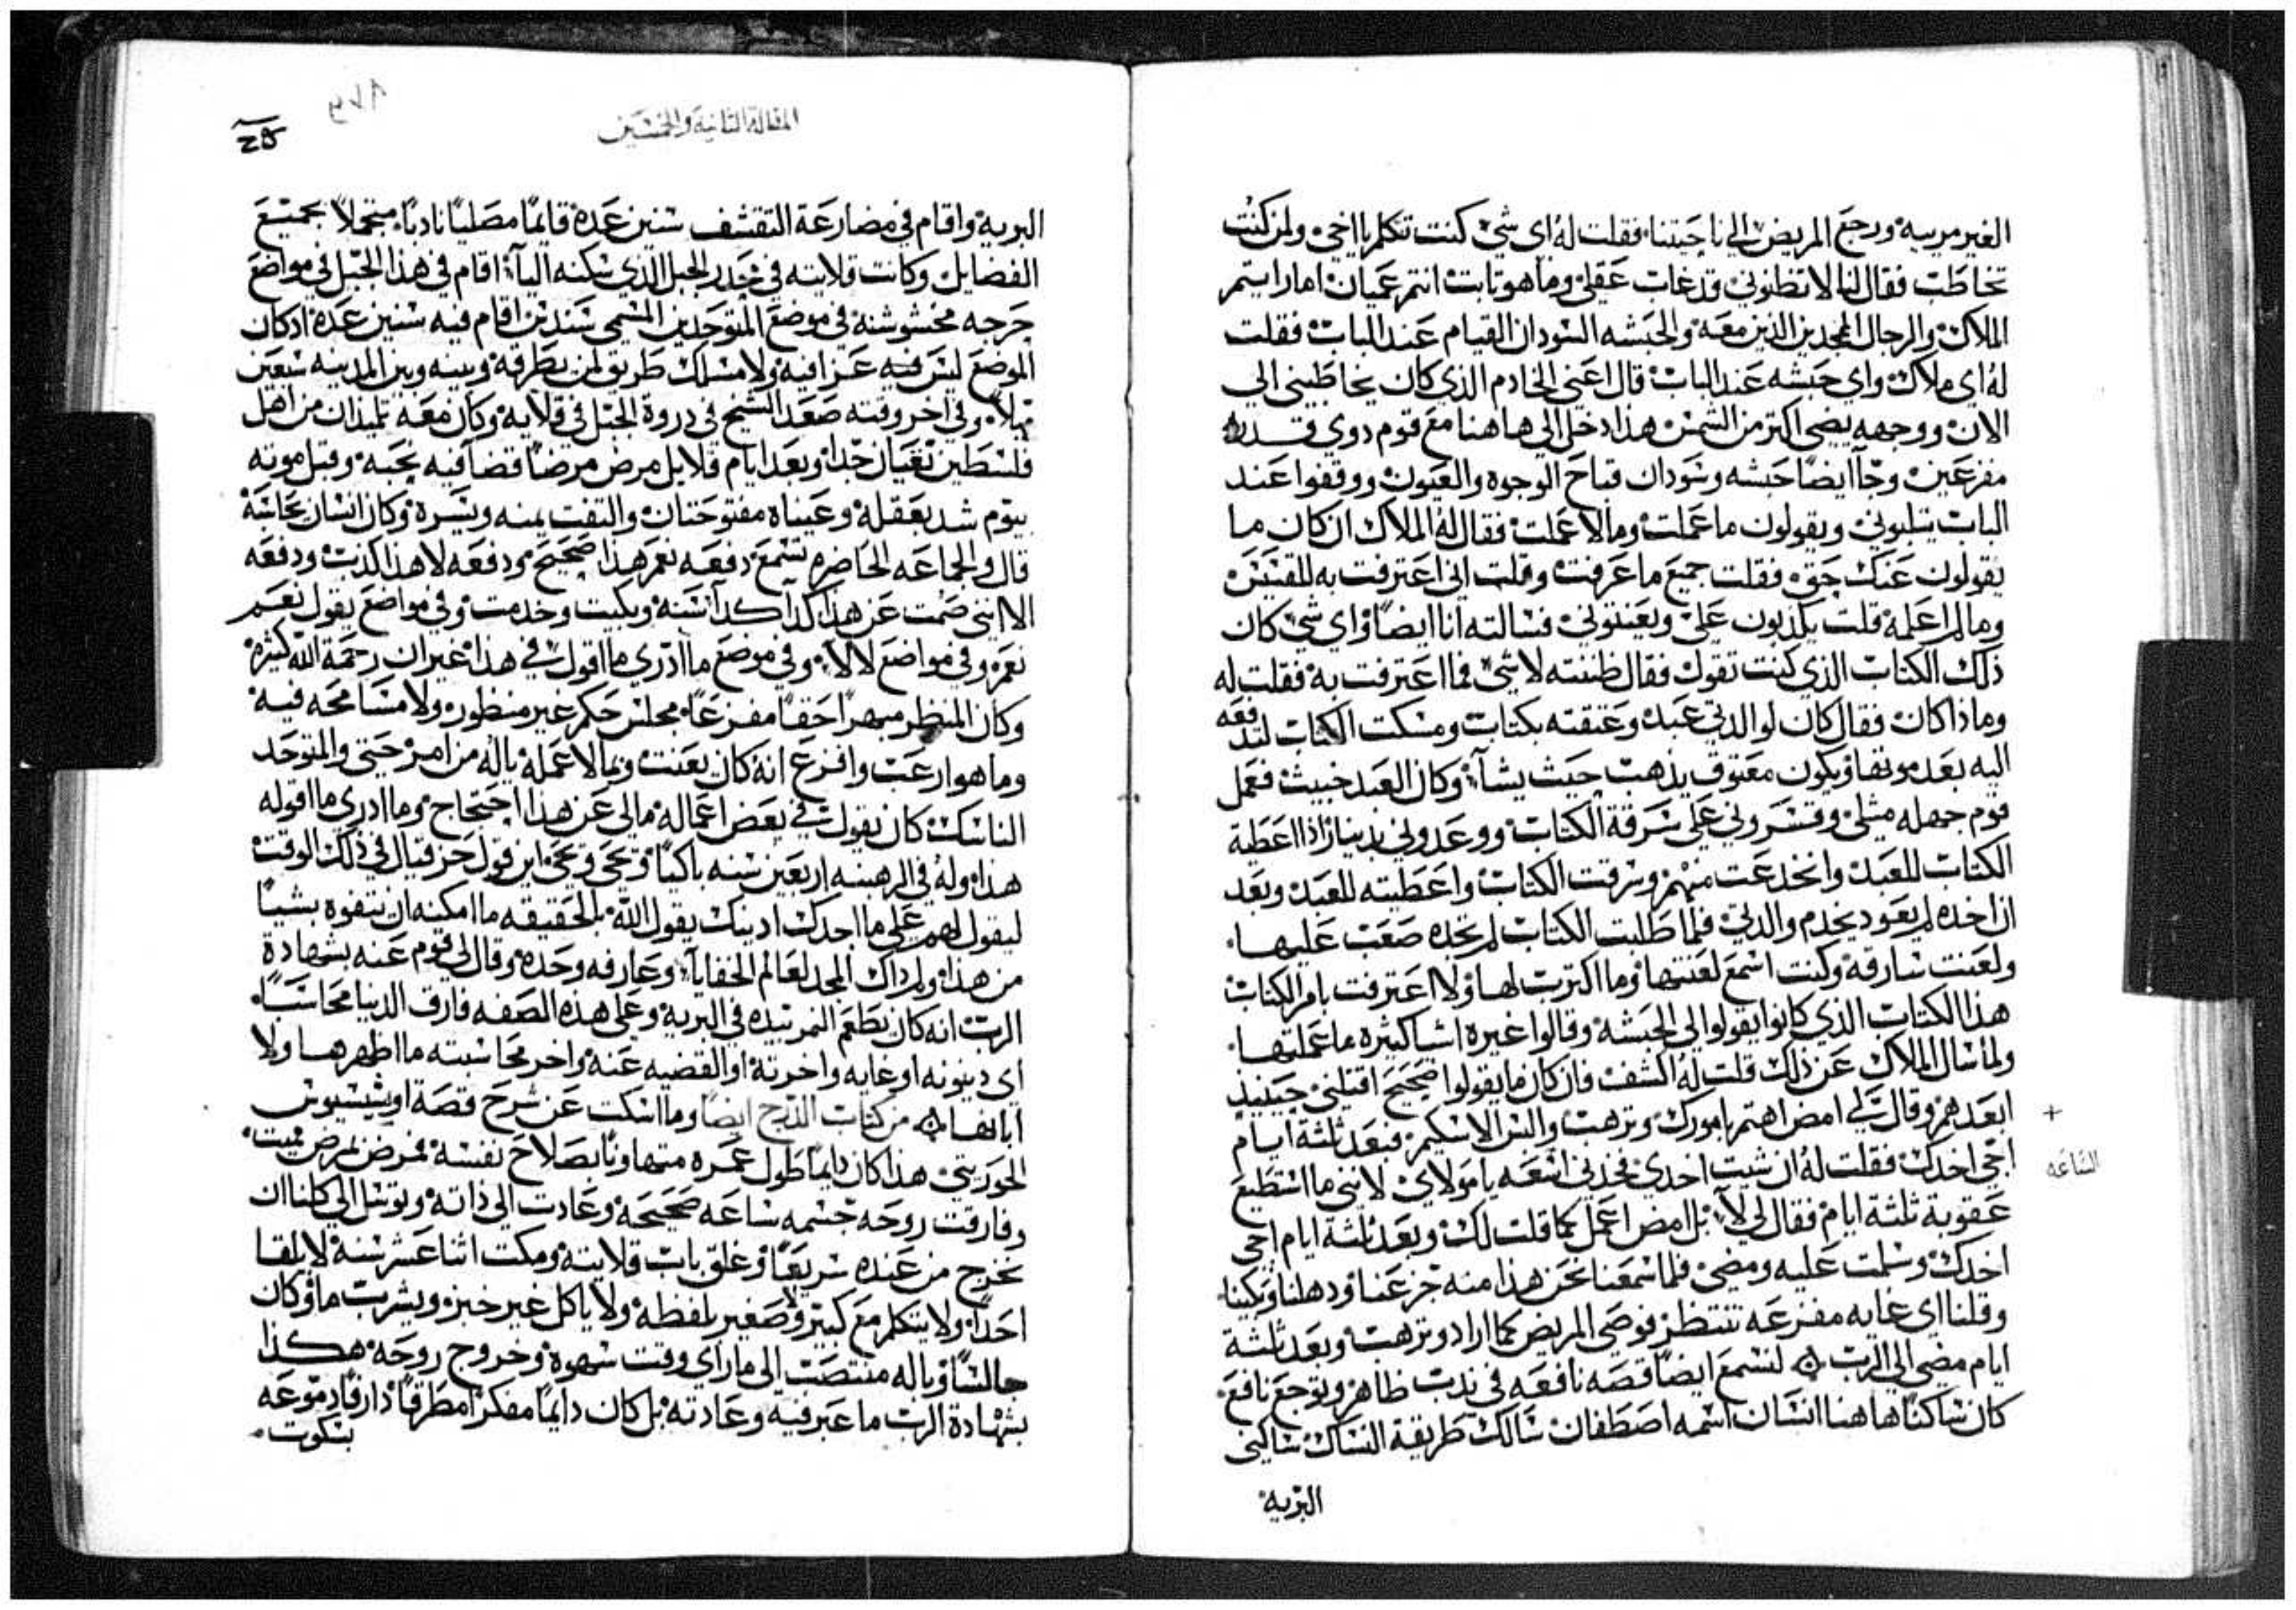 الغير مرييه ورجع المريض الي ناحيتنا فقلت له اي شي كنت تكلم يا اخي ولمن كنت
تخاطب فقال لنا لا تظنوني قد غاب عقلي وما هو تابت انتم عميان اما رايتم
الملاك والرجال الممجدين الذين معه والحبشه السودان القيام عند الباب فقلت
له اي ملاك واي حبشه عند الباب قال اعني الخادم الذي كان يخاطبني الي
الان ووجهه يضي اكتر من الشمس هذا دخل الي هاهنا مع قوم دوي قدره
مفزعين وجا ايضا حبشه وسودان قباح الوجوه والعيون ووقفوا عند
الباب يتلبوني ويقولون ما عملت وما لا عملت فقال له الملاك ان كان ما
يقولون عنك حق فقلت جميع ما عرفت وقلت اني اعترفت به للقسيس
وما لم اعلمه قلت يكذبون علي ويعنتوني فسالته انا ايضا واي شي كان
ذلك الكتاب الذي كنت تقول فقال ظننته لا شي فما اعترفت به فقلت له
وماذا كان فقال كان لوالدتي عبد وعتقته بكتاب ومسكت الكتاب لتدفعه
اليه بعد موتها ويكون معتوق يذهب حيث يشا وكان العبد خبيث فعمل
قوم جهله مثلي وقسروني علي سرقة الكتاب ووعدوني بدينار اذا اعطية
الكتاب للعبد وانخدعت منهم وسرقت الكتاب واعطيته للعبد وبعد
ان اخده لم يعود يخدم والدتي فلما طلبت الكتاب لم تجده صعب عليها
ولعنت سارقه وكنت اسمع لعنتها وما اكترت لها ولا اعترفت بامر الكتاب
هذا الكتاب الذي كانوا يقولوا لي الحبشه وقالوا غيره اشيا كثيره ما عملتها
ولما سال الملاك عن ذلك قلت له اكشف فان كان ما يقولوا صحيح اقتلني حينيذ
ابعدهم وقال لي امض اهتم بامورك وترهب والبس الاسكيم فبعد ثلثة ايام
اجي اخدك فقلت له ان شيت اخدي فخدني الساعه يا مولاي لانني ما استطيع
عقوبة ثلثة ايام فقال لي لا بل امض اعمل كما قلت لك وبعد ثلثة ايام اجي
اخدك وسلمت عليه ومضي فلما سمعنا نحن هذا منه جزعنا ودهلنا وبكينا
وقلنا اي غايه مفزعه تنتظر فوصي المريض كما اراد وترهب وبعد ثلثة
ايام مضي الي الرب لنسمع ايضا قصه نافعه في ندب ظاهر وتوجع نافع
كان ساكنا هاهنا انسان اسمه اصطفان سالك طريقة النساك ساكني
البريه
الساعه
المقالة الثانية والخمسين
البريه واقام في مضارعة التقشف سنين عدة قايما مصليا نادبا متجملا بجميع
الفضايل وكانت قلايته في حدر الجبل الذي سكنه اليا اقام في هذا الجبل في مواضع
حرجه مخشوشنه في موضع المتوحدين المسمي سنديس اقام فيه سنين عده اد كان
الموضع ليس فيه عزا فيه ولا مسلك طريق لمن يطرقه وبينه وبين المدينه سبعين
ميلا وفي اخر وقته صعد الشيخ في دروة الجبل في قلايه وكان معه تلميذان من اهل
فلسطين تقيان جدا وبعد ايام قلايل مرض مرضا قضا فيه نحبه وقبل موته
بيوم شد بعقله وعيناه مفتوحتان والتفت يمنه ويسره وكان انسان يحاسبه
قال والجماعه الحاضره تسمع دفعه نعم هذا صحيح ودفعه لا هذا كذب ودفعه
الا انني صمت عن هذا كدا كدا سنه وبكيت وخدمت وفي مواضع يقول نعم
نعم وفي مواضع لا لا وفي موضع ما ادري ما اقول في هذا غير ان رحمة الله كثيره
وكان المنظر مبهرا حقا مفزعا مجلس حكم غير منظور ولا مسامحه فيه
وما هو ارعب وافزع انه كان يعنت وبما لا عمله ياله من امر حتي والمتوحد
الناسك كان يقول في بعض اعماله مالي عن هذا احتجاج وما ادري ما اقوله
هذا وله في الرهبنه اربعين سنه باكيا ويحي ويحي اين قول حزقيال في ذلك الوقت
ليقول لهم علي ما اجدك ادينك يقول الله بالحقيقه ما امكنه ان يتفوه بشيا
من هذا ولم ذاك المجد لعالم الخفايا وعارفه وحده وقال لي قوم عنه بشهادة
الرب انه كان يطعم النمر بيده في البريه وعلي هذه الصفه فارق الدنيا محاسبا
اي دينونه او غايه واخرته او القضيه عنه واخر محاسبته ما اظهرها ولا
ابانها من كتاب الدرج ايضا وما اسكت عن شرح قصة اوسيسيوس
الحوريتي هذا كان دايما طول عمره متهاونا بصلاح نفسه فمرض لمرض مميت
وفارقت روحه جسمه ساعه صحيحه وعادت الي ذاته وتوسل الي كلنا ان
نخرج من عنده سريعا وغلق باب قلايته ومكت اثنا عشر سنه لا يلقا
احدا ولا يتكلم مع كبير ولا صغير بلفظه ولا ياكل غير خبز ويشرب ما وكان
جالسا وباله منتصب الي ما راي وقت سهوه وخروج روحه هكذا
بشهادة الرب ما عبر فيه وعادته بل كان دايما مفكرا مطرقا دارفا دموعه
بسكوت